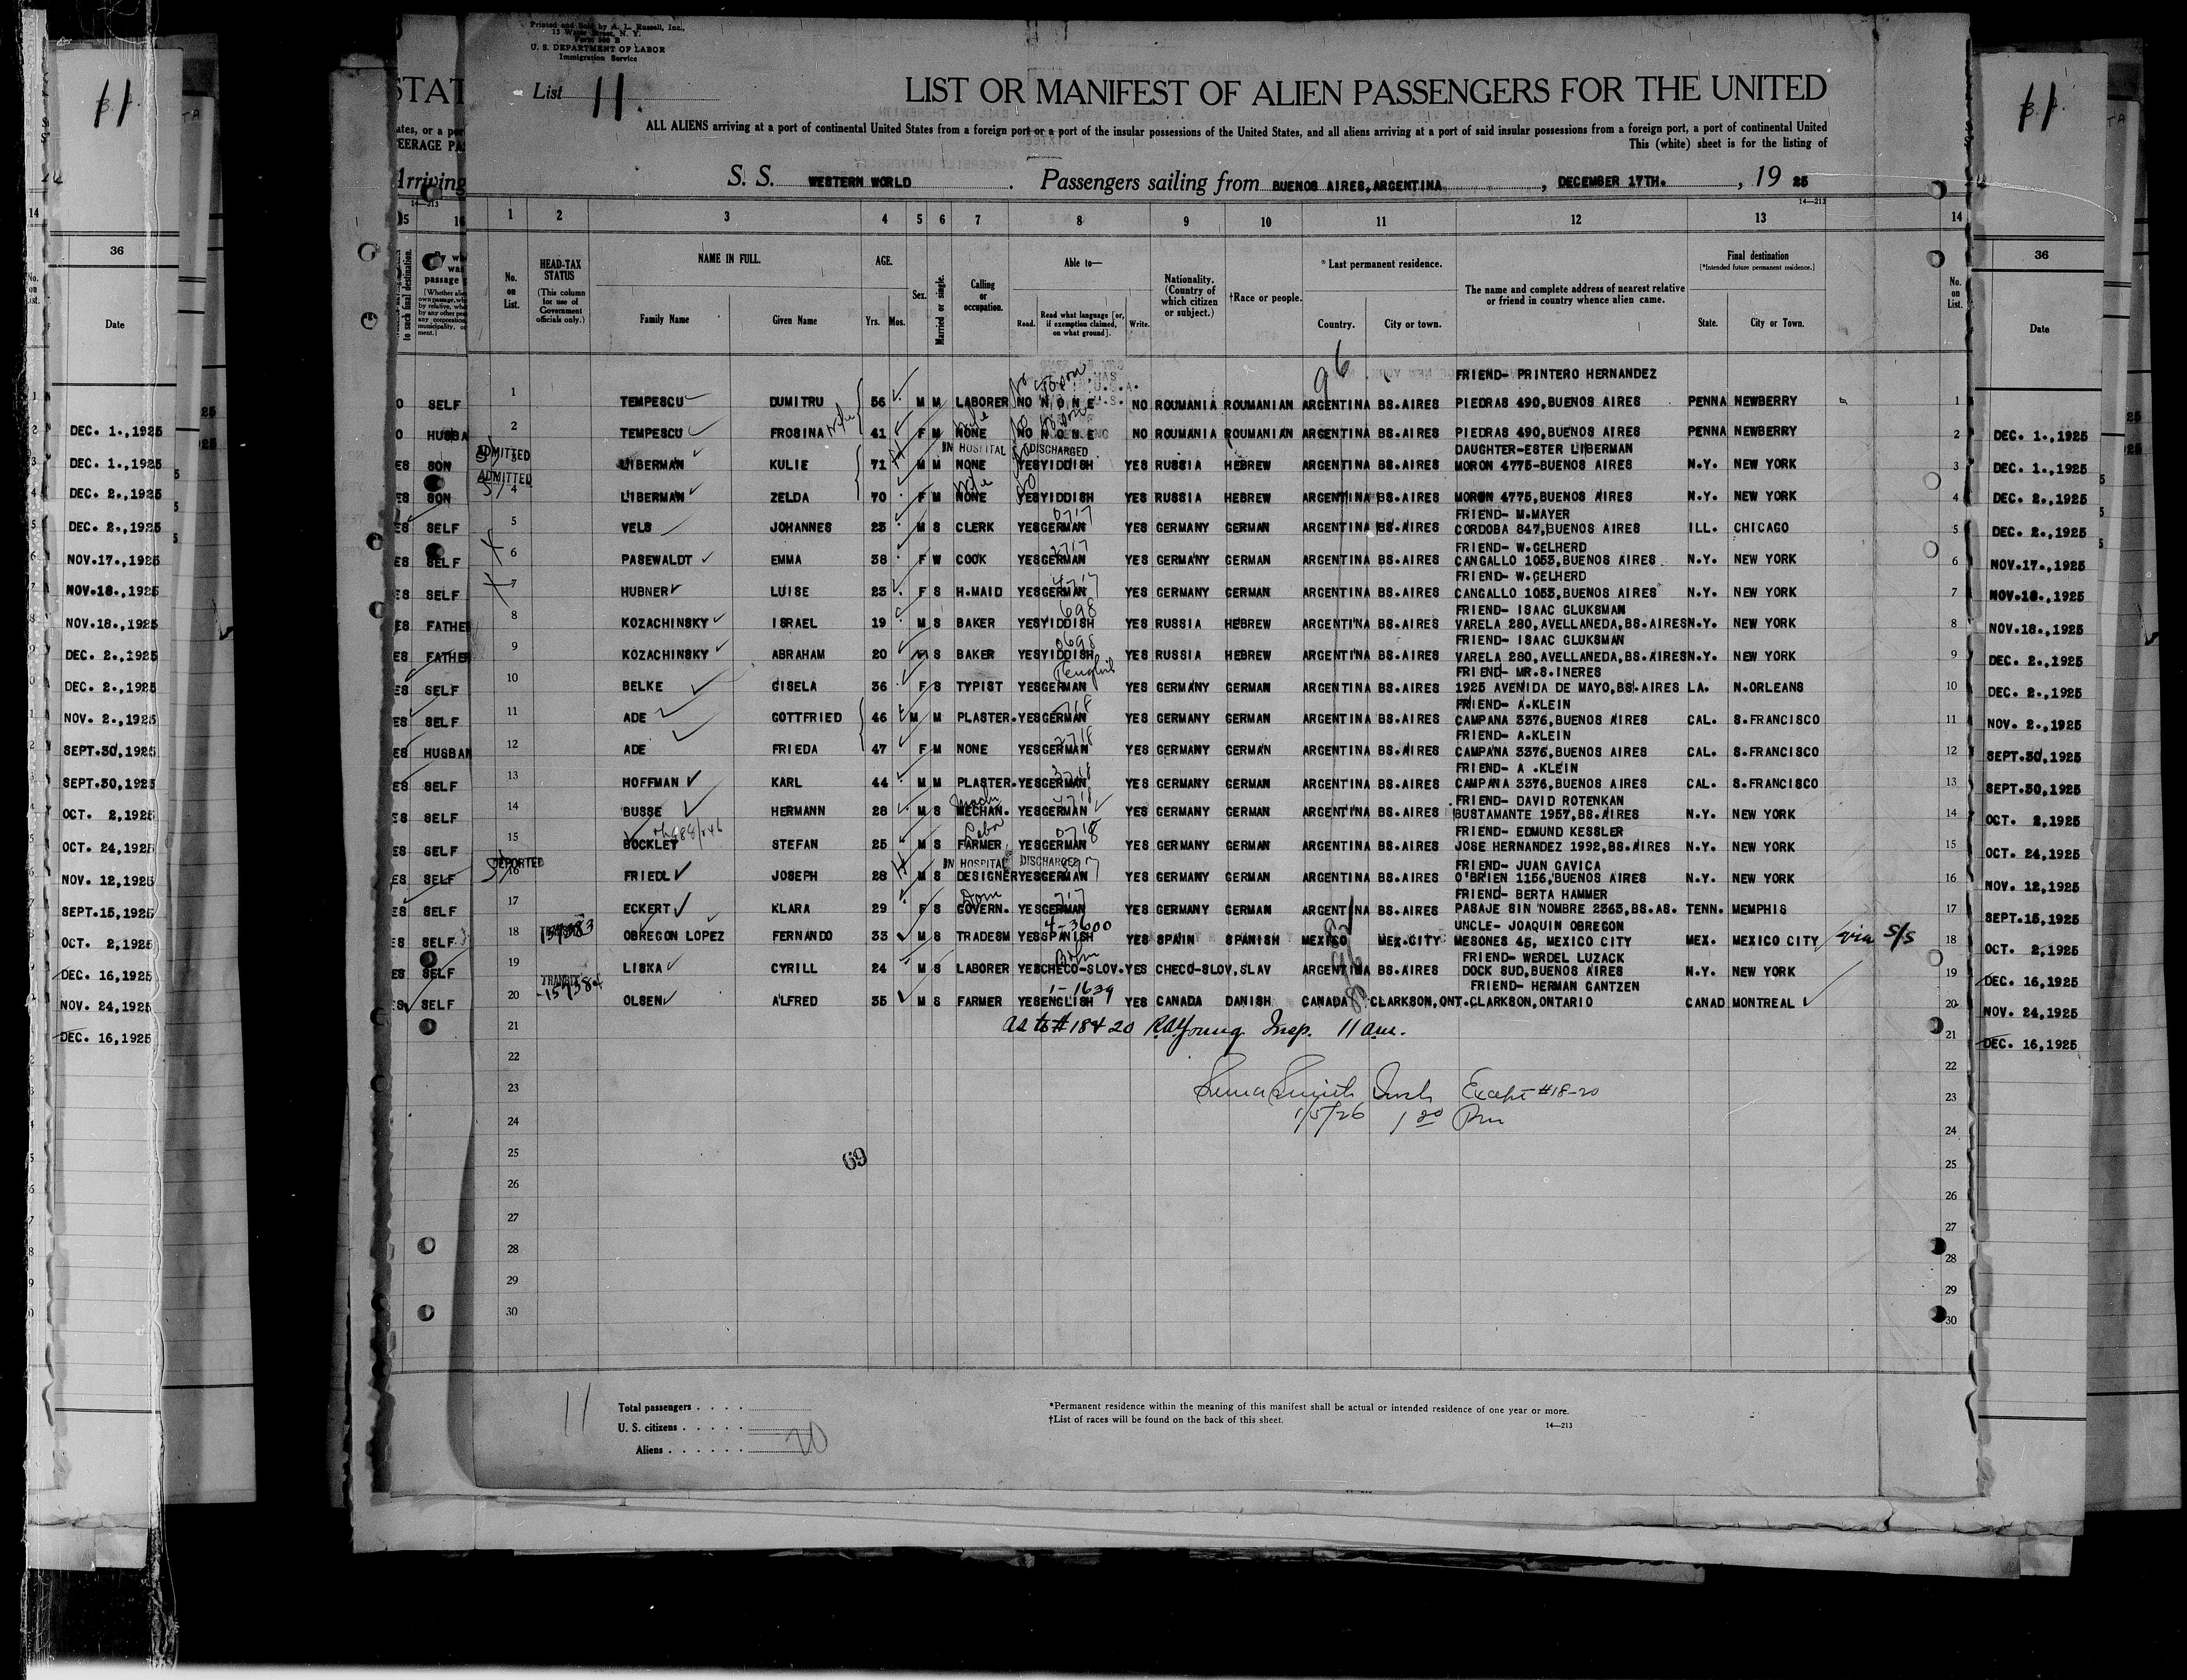 Printed and Sold by A. L. Russell, Inc.,
13 Water Street, N. Y.
Form 500 B
U. S. DEPARTMENT OF LABOR
Immigration Service
List 11.
LIST OR MANIFEST OF ALIEN PASSENGERS FOR THE UNITED
ALL ALIENS arriving at a port of continental United States from a foreign port or a port of the insular possessions of the United States, and all aliens arriving at a port of said insular possessions from a foreign port, a port of continental United
This (white) sheet is for the listing of
S. S. WESTERN WORLD. Passengers sailing from BUENOS AIRES, ARGENTINA, DECEMBER 17TH., 19 25
14—213
1 2 3 4 5 6 7 8 9 10 11 12 13 14
No. on List.
HEAD-TAX STATUS
(This column for use of Government officials only.)
NAME IN FULL.
Family Name Given Name
AGE.
Yrs. Mos.
Sex.
Married or single.
Calling or occupation.
Able to—
Read. Read what language [or, if exemption claimed, on what ground]. Write.
Nationality. (Country of which citizen or subject.)
†Race or people.
*Last permanent residence.
Country. City or town.
The name and complete address of nearest relative or friend in country whence alien came.
Final destination
[*Intended future permanent residence.]
State. City or Town.
No. on List.
96
FRIEND- PRINTERO HERNANDEZ
1 TEMPESCU DUMITRU 56 M M LABORER NO NONE NO ROUMANIA ROUMANIAN ARGENTINA BS.AIRES PIEDRAS 490,BUENOS AIRES PENNA NEWBERRY 1
2 TEMPESCU FROSINA wife 41 F M NONE NO NONE NO ROUMANIA ROUMANIAN ARGENTINA BS.AIRES PIEDRAS 490,BUENOS AIRES PENNA NEWBERRY 2
ADMITTED IN HOSPITAL DISCHARGED DAUGHTER-ESTER LIBERMAN
3 LIBERMAN KULIE 71 M M NONE YES YIDDISH YES RUSSIA HEBREW ARGENTINA BS.AIRES MORON 4775-BUENOS AIRES N.Y. NEW YORK 3
ADMITTED
4 LIBERMAN ZELDA 70 F M NONE YES YIDDISH YES RUSSIA HEBREW ARGENTINA BS.AIRES MORON 4775,BUENOS AIRES N.Y. NEW YORK 4
FRIEND- M.MAYER
5 VELS JOHANNES 23 M S CLERK YES GERMAN YES GERMANY GERMAN ARGENTINA BS.AIRES CORDOBA 847,BUENOS AIRES ILL. CHICAGO 5
FRIEND- W.GELHERD
6 PASEWALDT EMMA 38 F W COOK YES GERMAN YES GERMANY GERMAN ARGENTINA BS.AIRES CANGALLO 1053,BUENOS AIRES N.Y. NEW YORK 6
FRIEND- W.GELHERD
7 HUBNER LUISE 23 F S H.MAID YES GERMAN YES GERMANY GERMAN ARGENTINA BS.AIRES CANGALLO 1053,BUENOS AIRES N.Y. NEW YORK 7
FRIEND- ISAAC GLUKSMAN
8 KOZACHINSKY ISRAEL 19 M S BAKER YES YIDDISH YES RUSSIA HEBREW ARGENTINA BS.AIRES VARELA 280,AVELLANEDA,BS.AIRES N.Y. NEW YORK 8
FRIEND- ISAAC GLUKSMAN
9 KOZACHINSKY ABRAHAM 20 M S BAKER YES YIDDISH YES RUSSIA HEBREW ARGENTINA BS.AIRES VARELA 280,AVELLANEDA,BS.AIRES N.Y. NEW YORK 9
FRIEND- MR.S.INERES
10 BELKE GISELA 36 F S TYPIST YES GERMAN YES GERMANY GERMAN ARGENTINA BS.AIRES 1925 AVENIDA DE MAYO,BS.AIRES LA. N.ORLEANS 10
FRIEND- A.KLEIN
11 ADE GOTTFRIED 46 M M PLASTER. YES GERMAN YES GERMANY GERMAN ARGENTINA BS.AIRES CAMPANA 3376,BUENOS AIRES CAL. S.FRANCISCO 11
FRIEND- A.KLEIN
12 ADE FRIEDA 47 F M NONE YES GERMAN YES GERMANY GERMAN ARGENTINA BS.AIRES CAMPANA 3376,BUENOS AIRES CAL. S.FRANCISCO 12
FRIEND- A .KLEIN
13 HOFFMAN KARL 44 M M PLASTER. YES GERMAN YES GERMANY GERMAN ARGENTINA BS.AIRES CAMPANA 3376,BUENOS AIRES CAL. S.FRANCISCO 13
FRIEND- DAVID ROTENKAN
14 BUSSE HERMANN 28 M S MECHAN. YES GERMAN YES GERMANY GERMAN ARGENTINA BS.AIRES BUSTAMANTE 1957,BS.AIRES N.Y. NEW YORK 14
FRIEND- EDMUND KESSLER
15 BOCKLET STEFAN 25 M S FARMER YES GERMAN YES GERMANY GERMAN ARGENTINA BS.AIRES JOSE HERNANDEZ 1992,BS.AIRES N.Y. NEW YORK 15
DEPORTED IN HOSPITAL DISCHARGED FRIEND- JUAN GAVICA
16 FRIEDL JOSEPH 28 M S DESIGNER YES GERMAN YES GERMANY GERMAN ARGENTINA BS.AIRES O'BRIEN 1156,BUENOS AIRES N.Y. NEW YORK 16
Dom FRIEND- BERTA HAMMER
17 ECKERT KLARA 29 F S GOVERN. YES GERMAN YES GERMANY GERMAN ARGENTINA BS.AIRES PASAJE SIN NOMBRE 2363,BS.AS. TENN. MEMPHIS 17
4-3600 UNCLE- JOAQUIN OBREGON
18 OBREGON LOPEZ FERNANDO 33 M S TRADESM YES SPANISH YES SPAIN SPANISH MEXICO MEX.CITY MESONES 45, MEXICO CITY MEX. MEXICO CITY via S/S 18
FRIEND- WERDEL LUZACK
19 LISKA CYRILL 24 M S LABORER YES CHECO-SLOV. YES CHECO-SLOV. SLAV ARGENTINA BS.AIRES DOCK SUD,BUENOS AIRES N.Y. NEW YORK 19
TRANSIT 1-1639 FRIEND- HERMAN GANTZEN
20 -157384 OLSEN ALFRED 35 M S FARMER YES ENGLISH YES CANADA DANISH CANADA CLARKSON,ONT. CLARKSON,ONTARIO CANAD MONTREAL 20
21 as to #18 & 20 Young Insp. 11 am. 21
22 22
23 Smith Except #18-20 23
1/5/26 1 20 Pm
24 24
25 69 25
26 26
27 27
28 28
29 29
30 30
11
Total passengers
U. S. citizens
Aliens 20
*Permanent residence within the meaning of this manifest shall be actual or intended residence of one year or more.
†List of races will be found on the back of this sheet.
14—213
STAT
ates, or a por
EERAGE PA
Arriving
14—213
SELF
HUSBA
SON
SON
SELF
SELF
SELF
FATHE
FATHE
SELF
SELF
HUSBAN
SELF
SELF
SELF
SELF
SELF
SELF
SELF
SELF
11
14
36
Date
DEC. 1.,1925
DEC. 1.,1925
DEC. 2.,1925
DEC. 2.,1925
NOV.17.,1925
NOV.18.,1925
NOV.18.,1925
DEC. 2.,1925
DEC. 2.,1925
NOV. 2.,1925
SEPT.30,1925
SEPT.30,1925
OCT. 2,1925
OCT. 24,1925
NOV. 12,1925
SEPT.15,1925
OCT. 2,1925
DEC. 16,1925
NOV. 24,1925
DEC. 16,1925
11
36
Date
DEC. 1.,1925
DEC. 1.,1925
DEC. 2.,1925
DEC. 2.,1925
NOV.17.,1925
NOV.18.,1925
NOV.18.,1925
DEC. 2.,1925
DEC. 2.,1925
NOV. 2.,1925
SEPT.30,1925
SEPT.30,1925
OCT. 2,1925
OCT. 24,1925
NOV. 12,1925
SEPT.15,1925
OCT. 2,1925
DEC. 16,1925
NOV. 24,1925
DEC. 16,1925